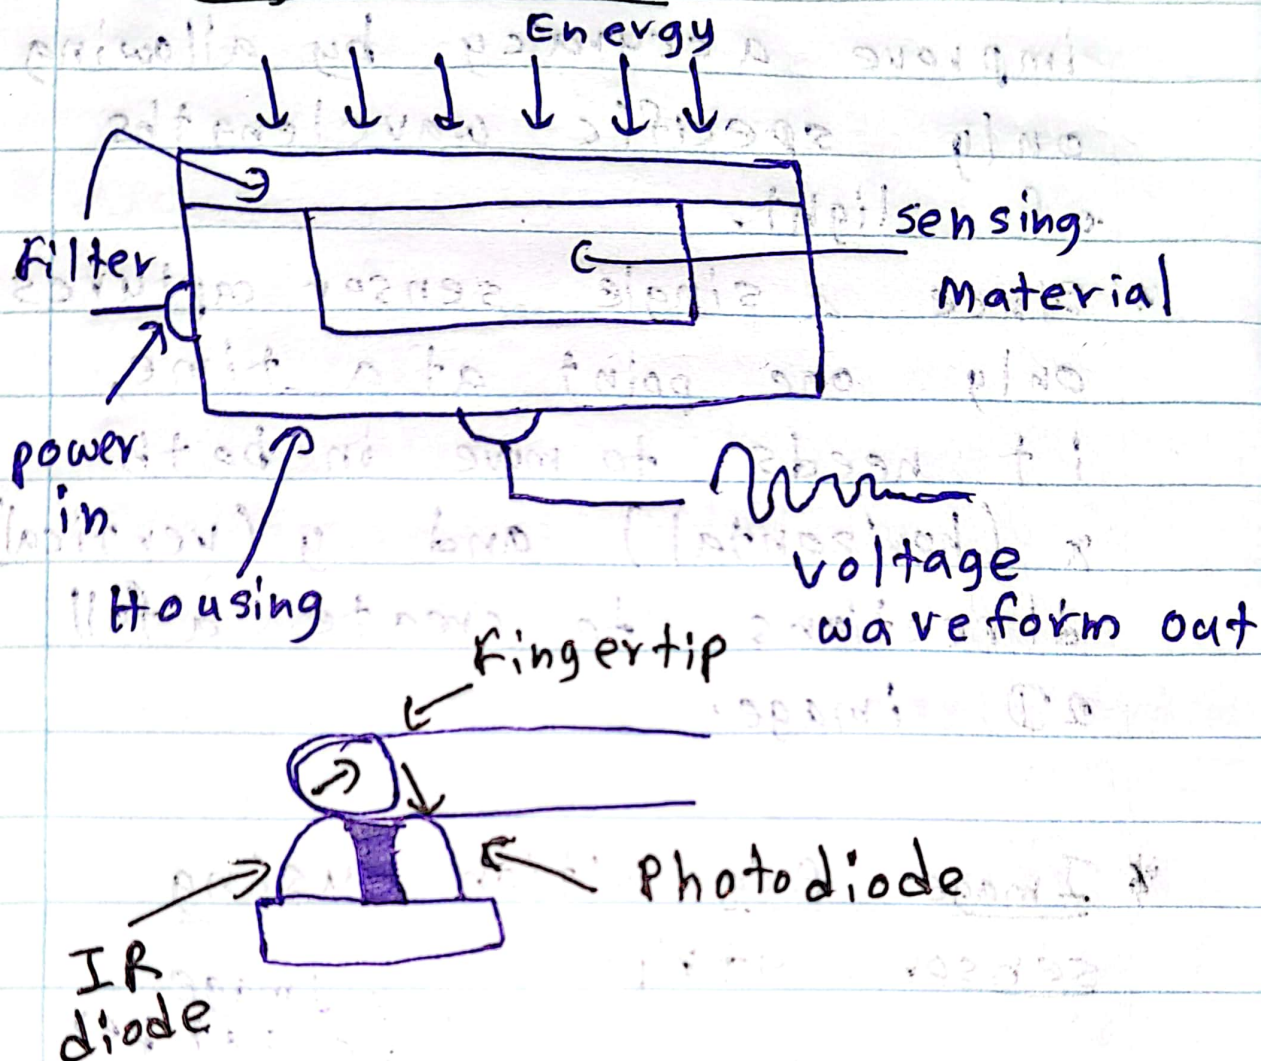 Energy
Filter
sensing
Material
power
in
Housing
voltage
waveform out
Fingertip
Photodiode
IR
diode